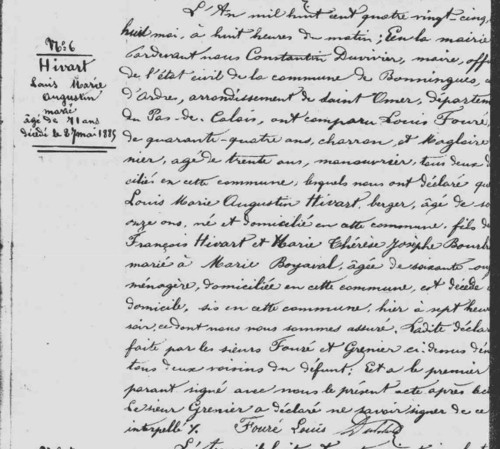 N°: 6
Hivart
Louis Marie
Augustin
marié
âgé de 71 ans
décédé le 7 mai 1885
L'An mil huit cent quatre vingt cinq,
huit mai, à huit heures du matin; En la mairie
Pardevant nous Constantin Duvivier, maire, offi
de l'état civil de la commune de Bonningues,
d'Ardres, arrondissement de Saint Omer, départem
du Pas-de-Calais, ont comparu Louis Fouré,
de quarante-quatre ans, charron, et Magloire
nier, âgé de trente ans, manouvrier, tous deux d
ciliés en cette commune, lesquels nous ont déclaré qu
Louis Marie Augustin Hivart, berger, âgé de so
onze ans, né et domicilié en cette commune, fils d
François Hivart et Marie Thérèse Josèphe Bourb
marié à Marie Boyaval, âgée de soixante on
ménagère, domiciliée en cette commune, est décédé
domicile, sis en cette commune, hier à sept heur
soir, ce dont nous nous sommes assuré, Ladite déclar
faite par les sieurs Fouré et Grenier ci-dessus dén
tous deux voisins du défunt; Et a le premier
parant signé avec nous le présent acte après lec
Le sieur Grenier a déclaré ne savoir signer de ce
interpellé %. Fouré Louis